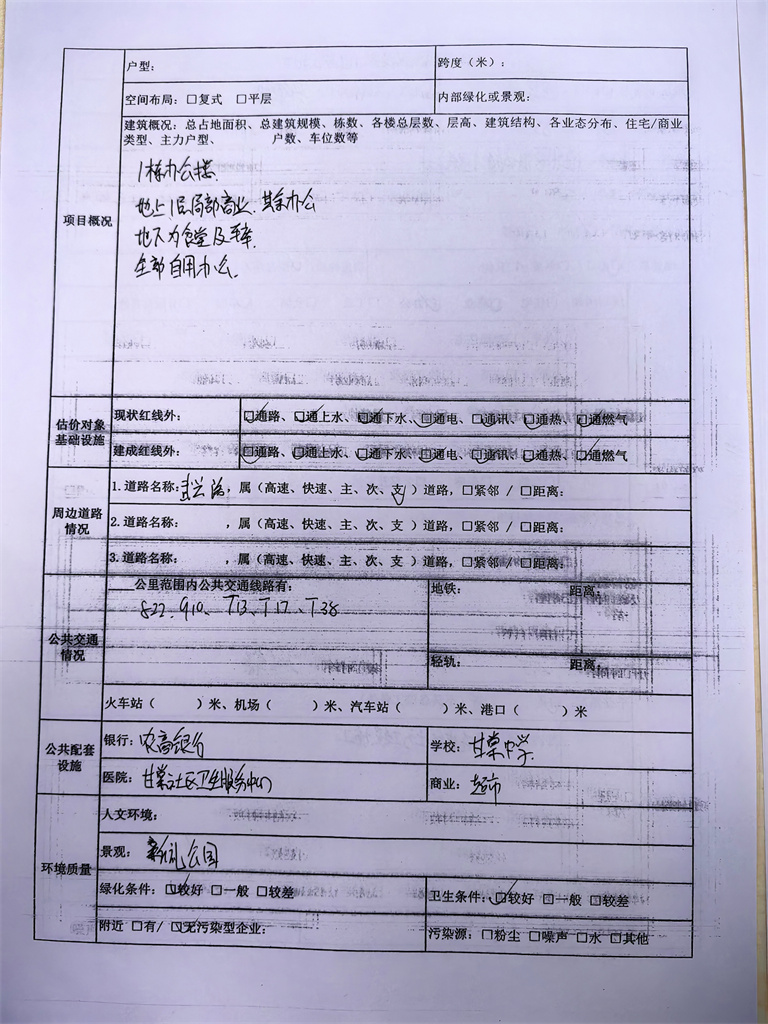 户型：
跨度（米）：
空间布局：☐复式 ☐平层
内部绿化或景观：
建筑概况：总占地面积、总建筑规模、栋数、各楼总层数、层高、建筑结构、各业态分布、住宅/商业
类型、主力户型、 户数、车位数等
项目概况
1栋办公楼.
地上1层局部商业. 其余办公
地下为食堂及车库.
全部自用办公.
估价对象
基础设施
现状红线外：
☑通路、☑通上水、☑通下水、☑通电、☑通讯、☑通热、☑通燃气
建成红线外：
☑通路、☑通上水、☑通下水、☑通电、☑通讯、☑通热、☑通燃气
周边道路
情况
1.道路名称： 路，属（高速、快速、主、次、支√）道路，☐紧邻 / ☐距离：
2.道路名称： ，属（高速、快速、主、次、支 ）道路，☐紧邻 / ☐距离：
3.道路名称： ，属（高速、快速、主、次、支 ）道路，☐紧邻 / ☐距离：
公共交通
情况
____公里范围内公共交通线路有：
822、910、T13、T17、T38
地铁： 距离：
轻轨： 距离：
火车站（ ）米、机场（ ）米、汽车站（ ）米、港口（ ）米
公共配套
设施
银行：农商银行
学校：甘棠中学.
医院：甘棠社区卫生服务中心
商业：超市
环境质量
人文环境：
景观： 公园
绿化条件：☑较好 ☐一般 ☐较差
卫生条件：☑较好 ☐一般 ☐较差
附近 ☐有/ ☑无污染型企业：
污染源：☐粉尘 ☐噪声 ☐水 ☐其他